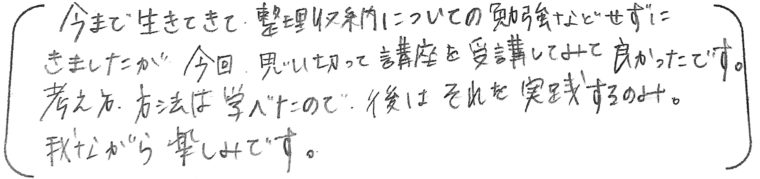 今まで生きてきて、整理収納についての勉強などせずに
きましたが、今回、思い切って講座を受講してみて良かったです。
考え方、方法は学べたので、後はそれを実践するのみ。
我ながら楽しみです。